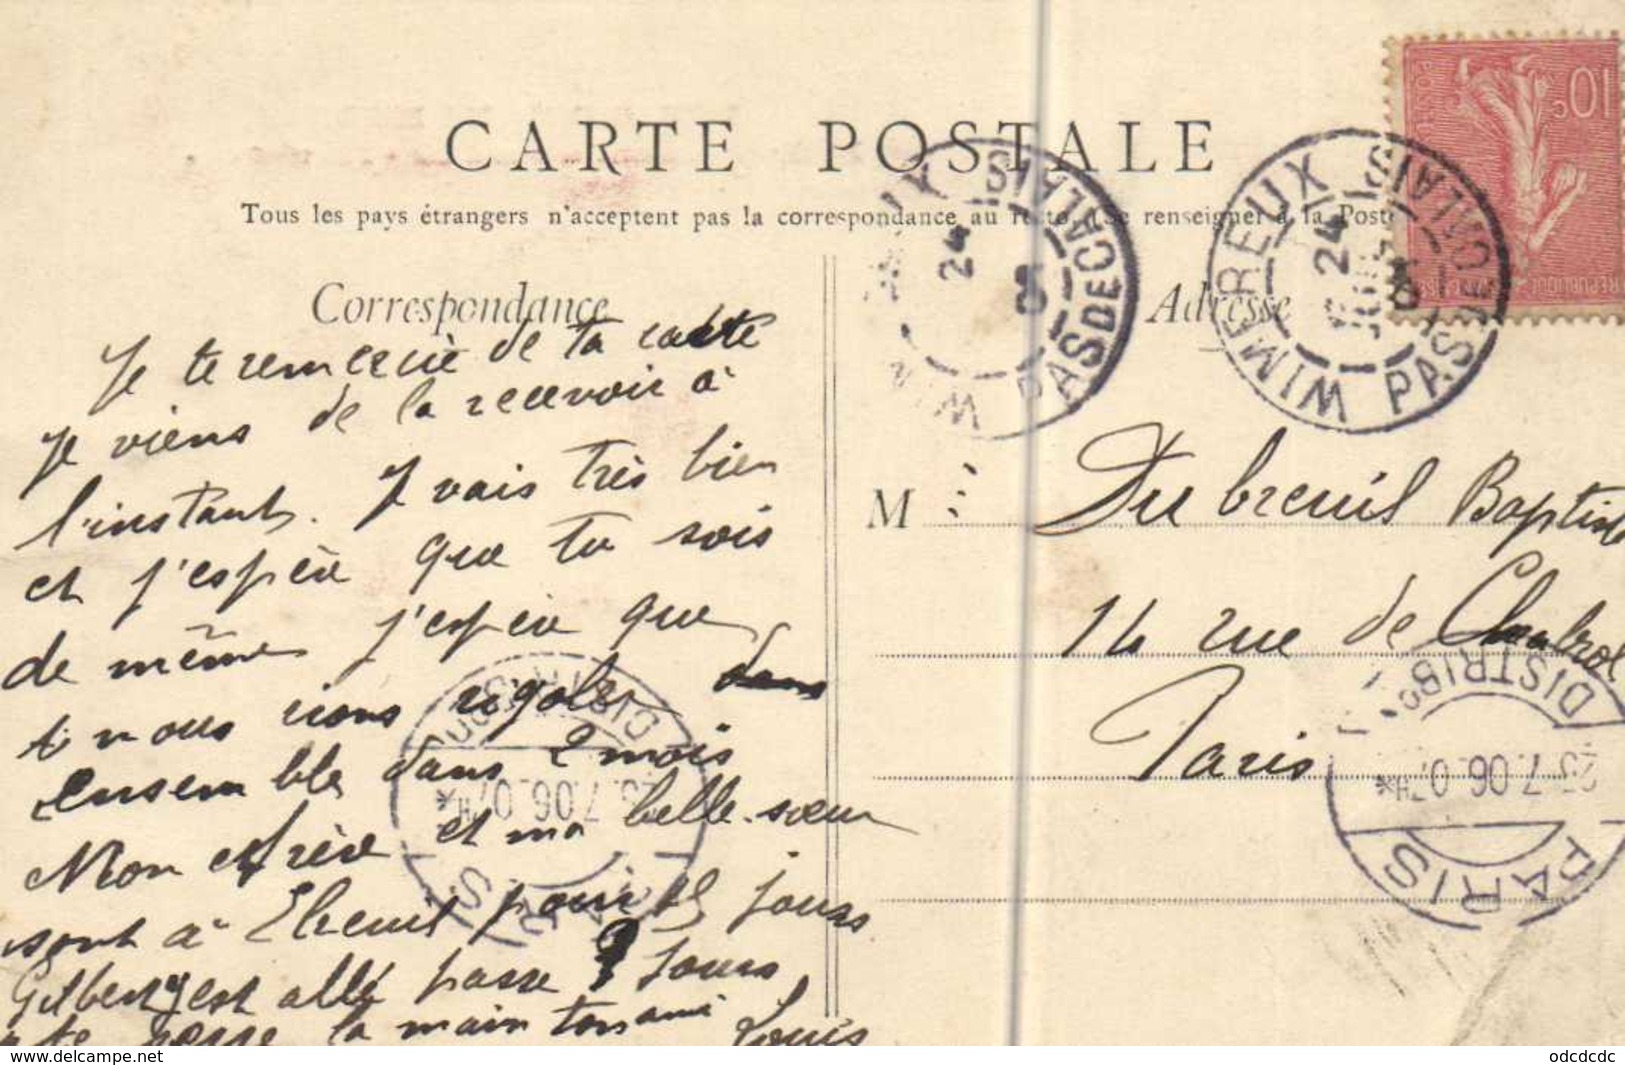 CARTE POSTALE
Tous les pays étrangers n'acceptent pas la correspondance au recto (Se renseigner à la Poste)
Correspondance
Je te remercie de ta carte
Je viens de la recevoir à
l'instant. Je vais très bien
et j'espère que tu sois
de même j'espère que
nous irons régaler
ensemble dans 2 mois
Mon frère et ma belle-sœur
sont à pour jours
Gilbert est allé passe jours
te serre la main ton ami Louis
Adresse
M Dubreuil Baptiste
14 rue de Chabrol
Paris
10c
POSTES
REPUBLIQUE FRANÇAISE
WIMEREUX PAS DE CALAIS
24
WIMEREUX PAS DE CALAIS
24
06
PARIS DISTRIBON
25.7.06
PARIS DISTRIBON
25.7.06
https://www.delcampe.net
odcdcdc